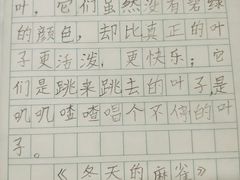 叶，它们虽然没有碧绿
的颜色，却比真正的叶
子更活泼，更快乐；它
们是跳来跳去的叶子，是
叽叽喳喳唱个不停的叶
子。
《冬天的麻雀》